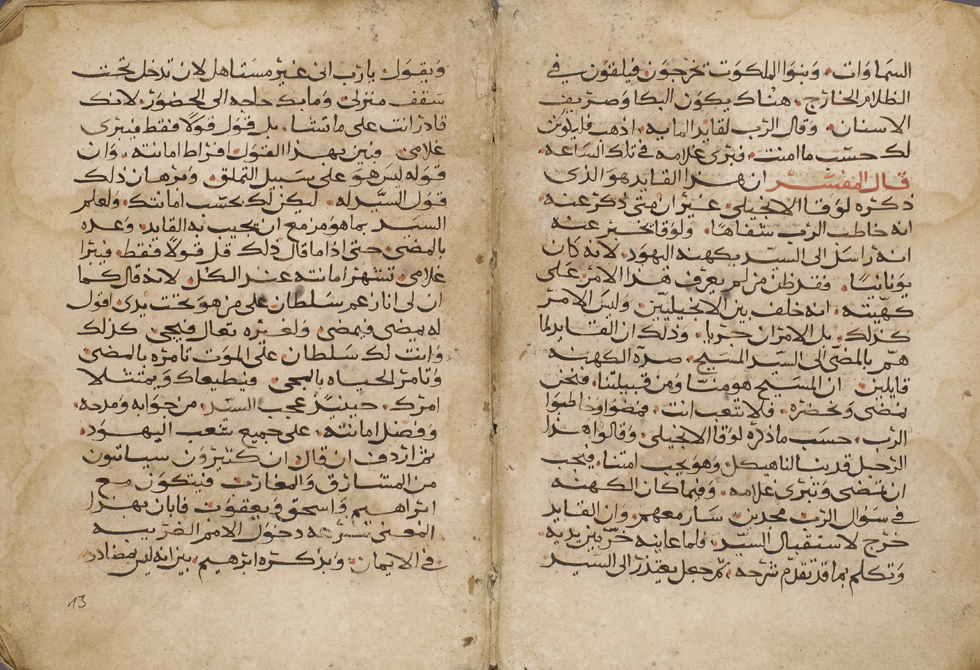 السماوات. وبنوا الملكوت تخرجون فيلقون في
الظلام الخارج. هناك يكون البكا وصريف
الاسنان. وقال الرب لقايد المايه. اذهب فليكون
لك حسب ما امنت. فبرى غلامه في تلك الساعه.
قال المفسر ان هذا القايد هو الذي
ذكره لوقا الانجيلي. غير ان متى ذكر عنه
انه خاطب الرب شفاها. ولوقا يخبر عنه
انه راسل الى السيد بكهنه اليهود. لانه كان
يونانيا. فقد ظن من لم يعرف هذا الامر على
كهيته. انه خلف بين الانجيليين. وليس الامر
كذلك. بل الامران حريا. وذلك ان القايد لما
هم بالمضى الى السيد المسيح. صده الكهنه
قايلين. ان المسيح هو منا ومن قبيلتنا. فنحن
نمضى ونحضره. فلا تتعب انت. فمضوا وخاطبوا
الرب. حسب ما ذكره لوقا الانجيلي. وقالوا هذا
الرجل قد بنا لنا هيكل. وهو يحب امتنا. فيجب
ان تمضى وتبرى غلامه. وفيما كان الكهنه
في سوال الرب مجدين. سار معهم. وان القايد
خرج لاستقبال السيد. ولما عاينه خر بين يديه.
وتكلم بما قد تقدم شرحه. ثم جعل يعتذر الى السيد
ويقول. يا رب انى غير مستاهل لان تدخل تحت
سقف منزلى. وما بك حاجه الى الحضور. لانك
قادر انت على ما تشا. بل قول قولا فقط فيبرى
غلامى. فبين بهذا القول. افراط امانته. وان
قوله ليس هو على سبيل التملق. وبرهان ذلك
قول السيد له. ليكن لك بحسب امانتك. ولعلم
السيد بما هو مزمع ان يجيب به القايد. وعده
بالمضى. حتى اذا ما قال ذلك قل قولا فقط. فيبرا
غلامى. تشتهر امانته عند الكل. لانه قال كما
ان لى انا زعم سلطان على من هو تحت يدى. اقول
له يمضى فيمضى. ولغيره تعال فيجى. كذلك
وانت لك سلطان على الموت تامره بالمضى
وتامر الحياه بالمجى. فيطيعاك ويمتثلا
امرك. حينيذ عجب السيد. من جوابه ومدحه.
وفضل امانته. على جميع شعب اليهود.
ثم اردف ان قال. ان كثيرون سياتون
من المشارق والمغارب. فيتكون مع
ابراهيم واسحق ويعقوب. فابان بهذا
المعنى دخول الامم الغريبه
في الايمان. وبذكره ابرهيم. بين انه ليس مضادد
13